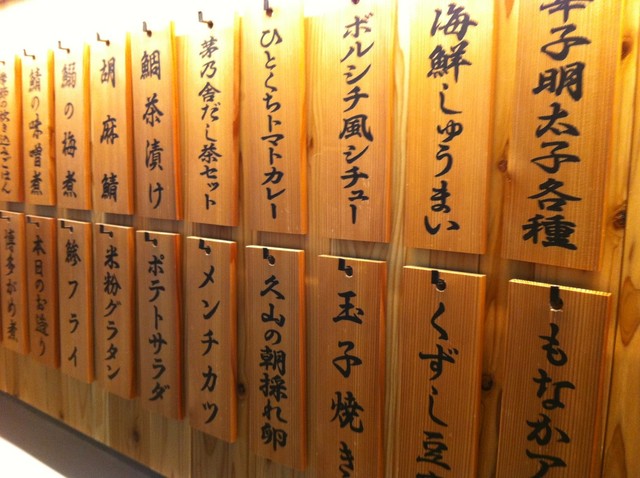 辛子明太子各種
海鮮しゅうまい
ボルシチ風シチュー
ひとくちトマトカレー
茅乃舎だし茶セット
鯛茶漬け
胡麻鯖
鰯の梅煮
鯖の味噌煮
季節の炊き込みごはん
もなかア
くずし豆
玉子焼き
久山の朝採れ卵
メンチカツ
ポテトサラダ
米粉グラタン
鯵フライ
本日のお造り
博多がめ煮